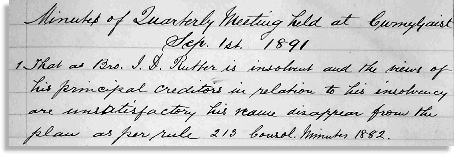 Minutes of Quarterly Meeting held at Cwmygaist
Sep. 1st. 1891
1. That as Bro. J. D. Rutter is insolvent and the views of
his principal creditors in relation to his insolvency
are unsatisfactory his name disappear from the
plan as per rule 213 Consol. Minutes 1882.